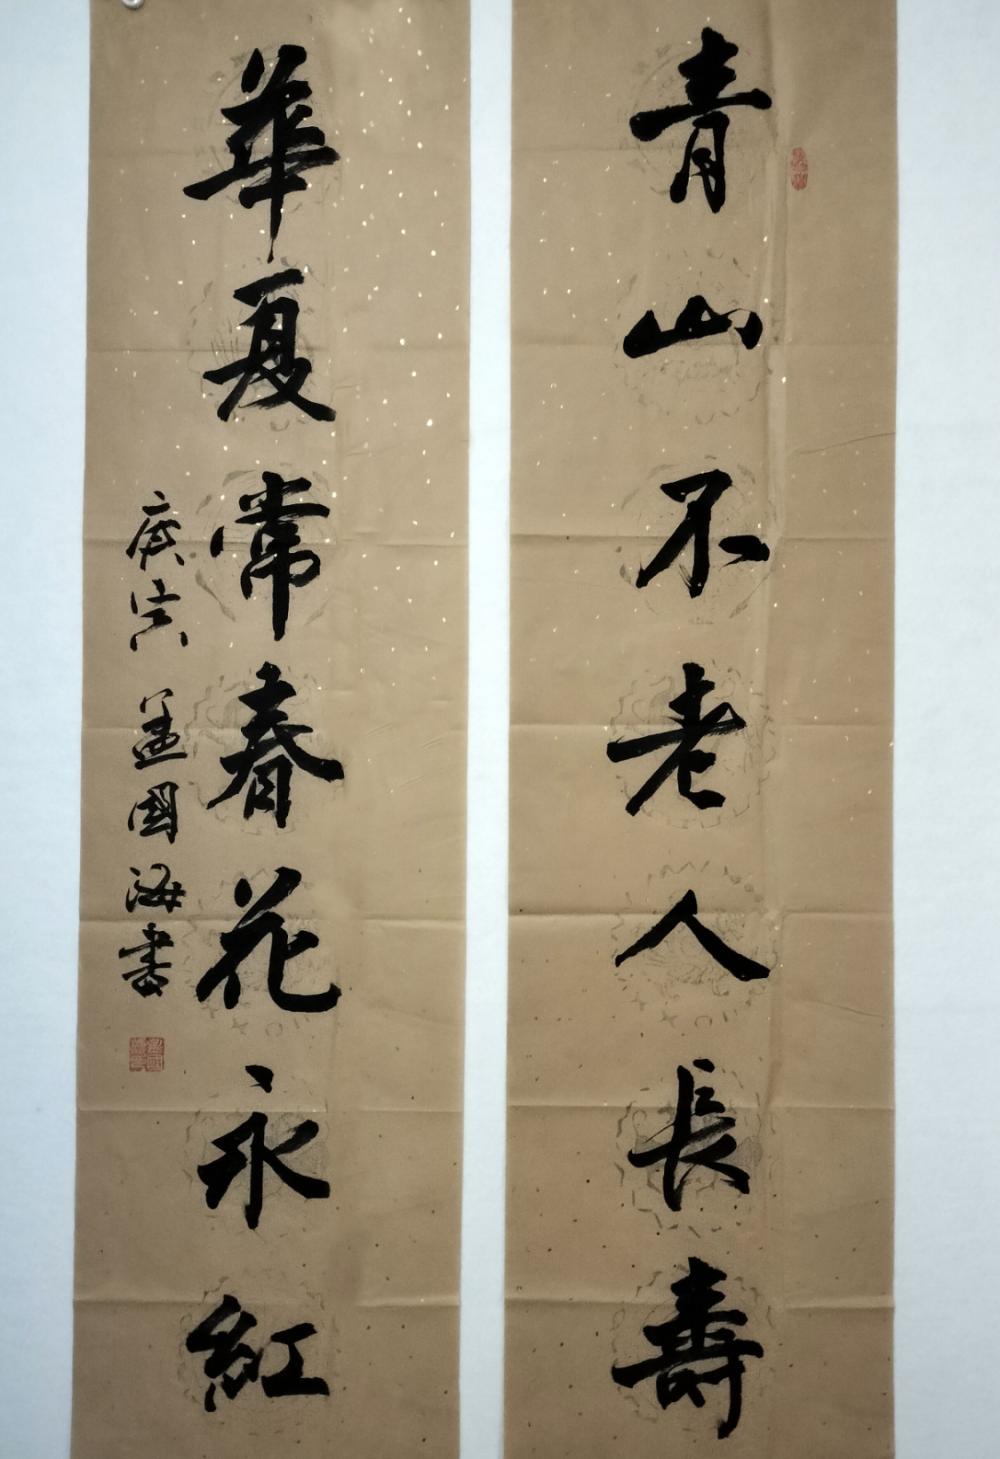 青山不老人長壽
華夏常春花永紅
庚寅 孟國海書